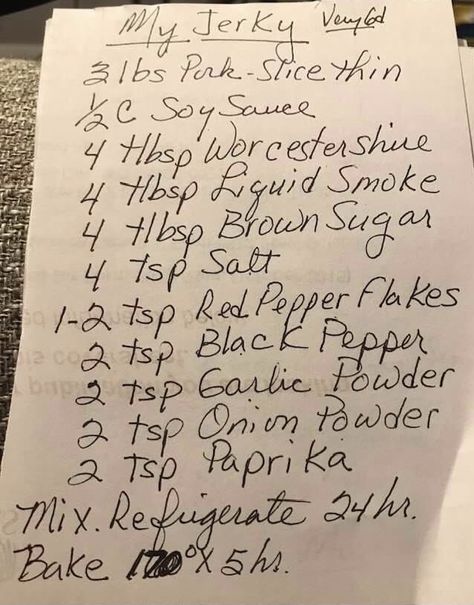 My Jerky Very Gd
3 lbs Pork - Slice thin
1/2 C Soy Sauce
4 tlbsp Worcestershire
4 tlbsp Liquid Smoke
4 tlbsp Brown Sugar
4 tsp Salt
1-2 tsp Red Pepper Flakes
2 tsp Black Pepper
2 tsp Garlic Powder
2 tsp Onion Powder
2 tsp Paprika
Mix. Refrigerate 24 hr.
Bake 170° x 5 hs.